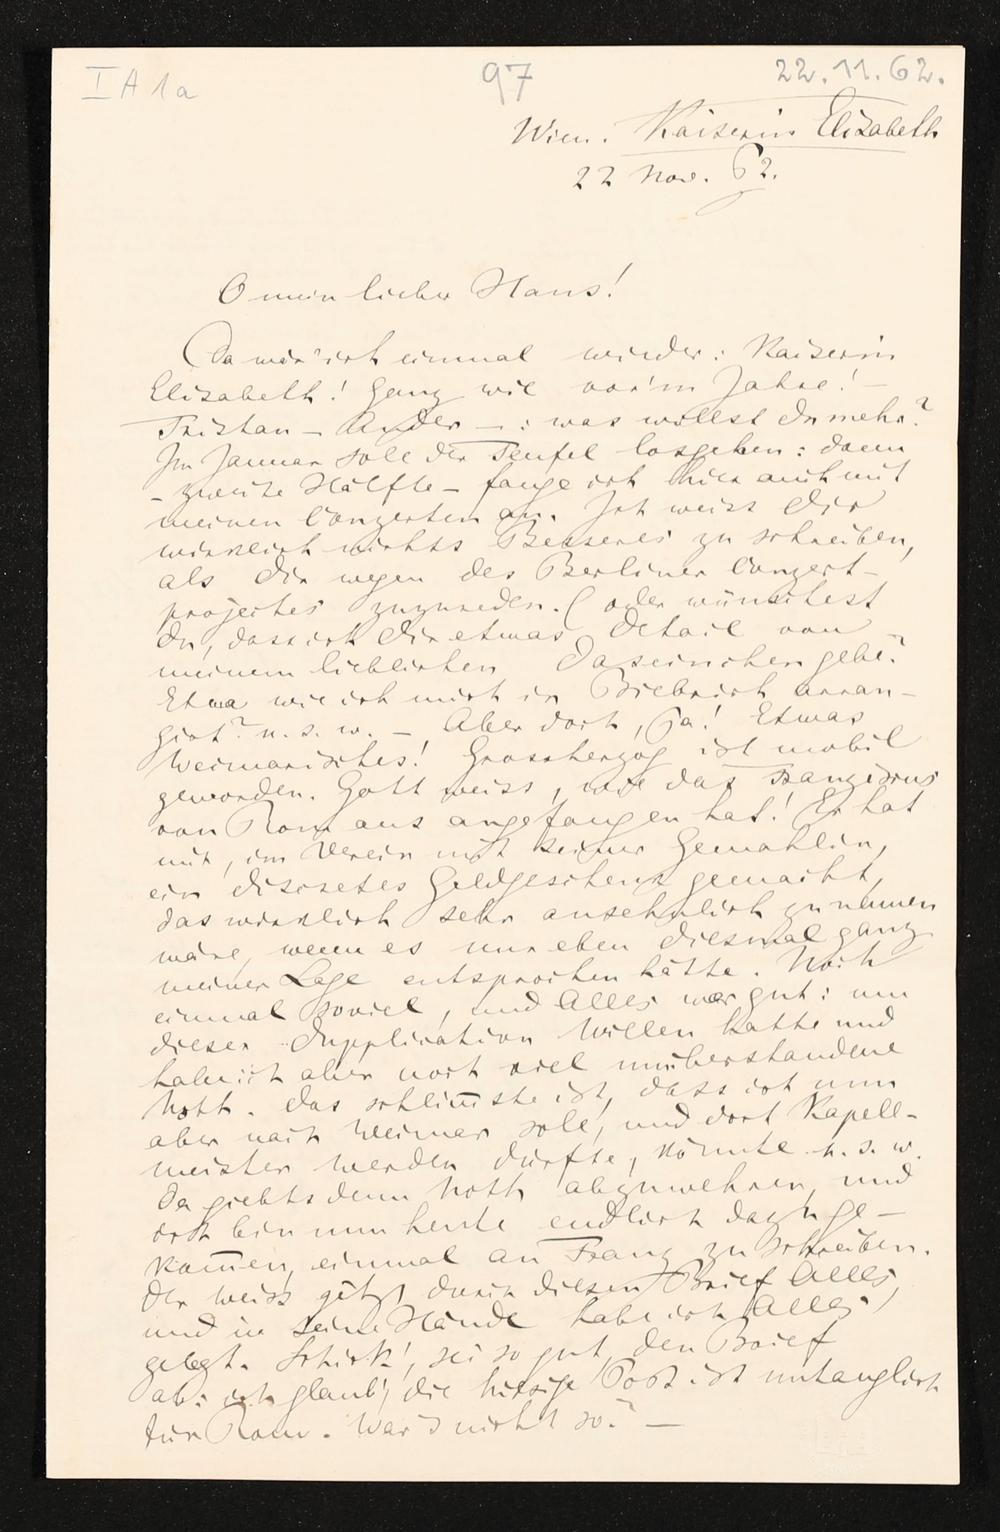 I A 1a
97
22.11.62.
Wien. Kaiserin Elisabeth
22 Nov. 62.
O mein lieber Hans!
Da wär' ich einmal wieder: Kaiserin
Elisabeth! Ganz wie vor'm Jahre! –
Tristan – Ander – : was willst du mehr?
Im Januar soll der Teufel losgehen: dann
– zweite Hälfte – fange ich hier auch mit
meinen Conzerten an. Ich weiss Dir
wirklich nichts Besseres zu schreiben,
als Dir wegen des Berliner Conzert-
projectes zuzureden. (oder wünschest
du, dass ich Dir etwas Detail von
meinem lieblichen Daseinchen gebe?
Etwa wie ich mich in Biebrich arran-
girt? u. s. w. – Aber doch, ja! Etwas
Weimarisches! Grossherzog ist mobil
geworden. Gott weiss, wie das Franziscus
von Rom aus angefangen hat! Er hat
mir, im Verein mit seiner Gemahlin,
ein discretes Geldgeschenk gemacht,
das wirklich sehr ansehnlich zu nennen
wäre, wenn es nur eben diesmal ganz
meiner Lage entsprochen hätte. Noch
einmal soviel, und Alles war gut: um
dieser Dupplication Willen hatte und
habe ich aber noch viel unüberstandene
Noth. Das schlim̅ste ist, dass ich nun
aber nach Weimar soll, und dort Kapell-
meister werden dürfte, könnte u. s. w.
Da giebts denn Noth abzuwehren, und
ich bin nun heute endlich dazu ge-
kom̅en, einmal an Franz zu schreiben.
Der weiss jetzt durch diesen Brief Alles,
und in seine Hände habe ich Alles
gelegt. Schick', sei so gut, den Brief
ab: ich glaub', die hiesige Post ist untauglich
für Rom. War's nicht so? –